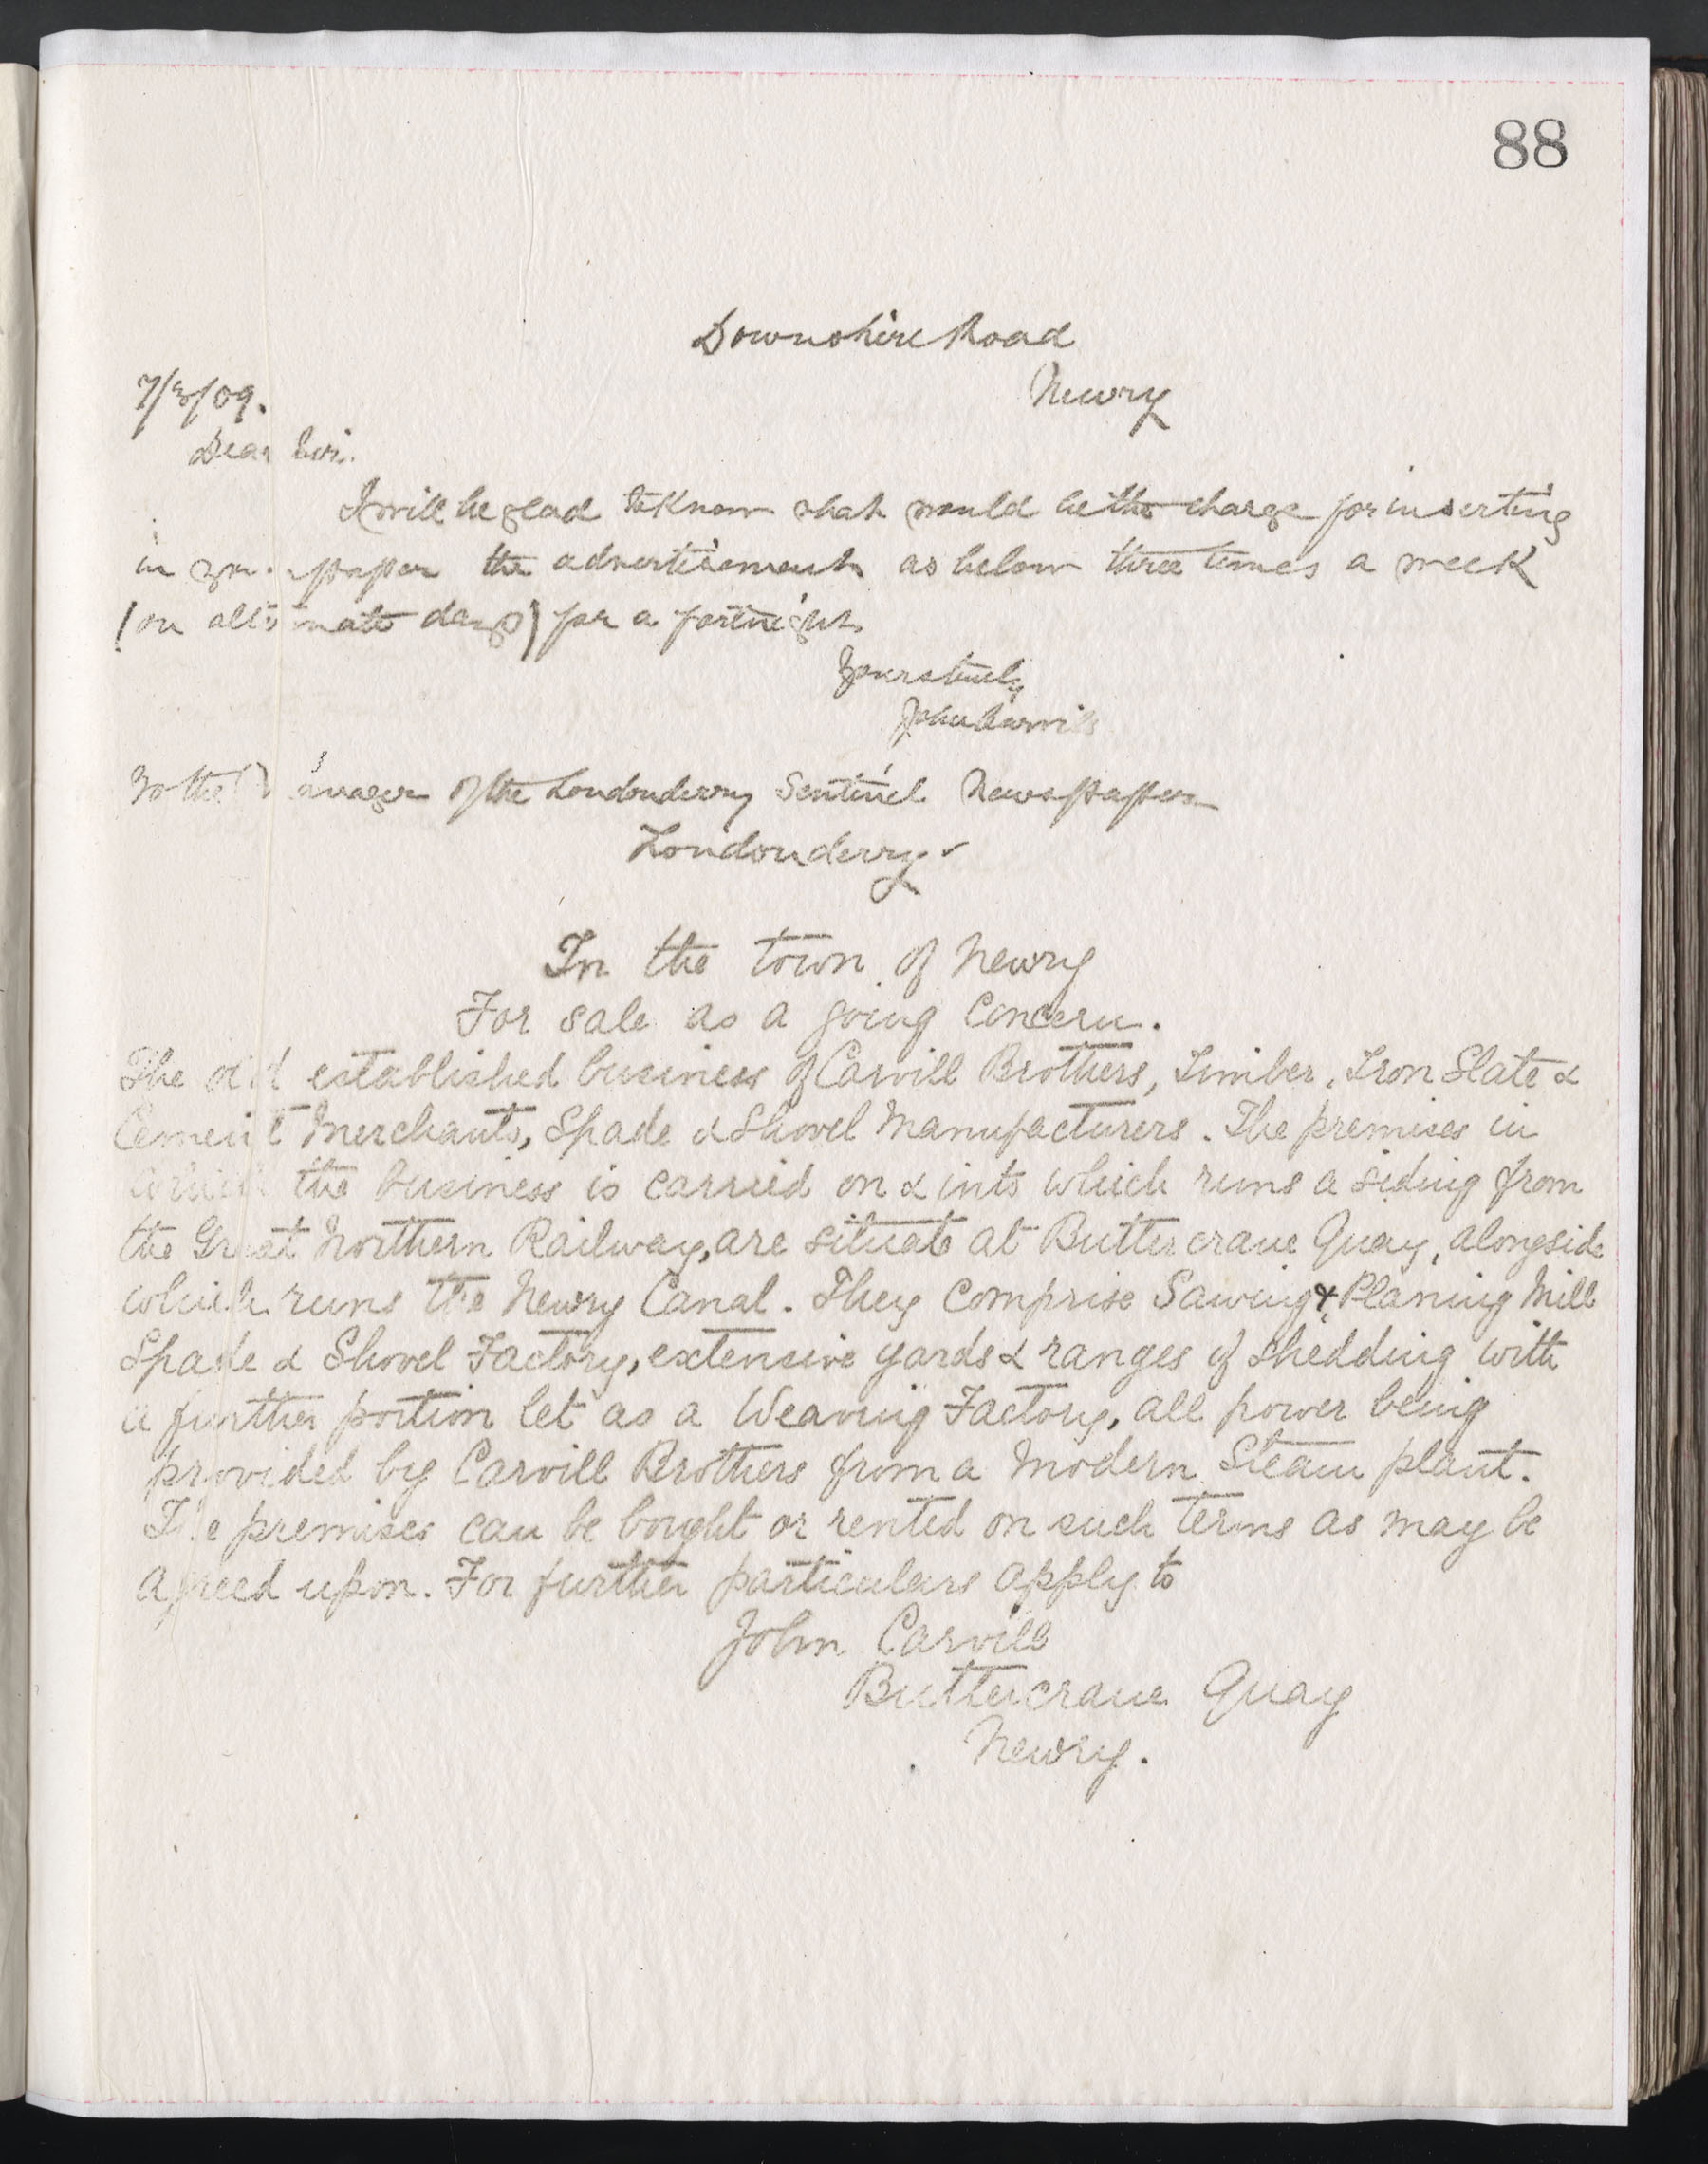 88
Downshire Road
Newry
7/3/09.
Dear Sir.
I will be glad to know what would be the charge for inserting
in your paper the advertisement as below three times a week
(on alternate days) for a fortnight
Yours truly
John Carvill
To the Manager of the Londonderry Sentinel Newspaper
Londonderry
In the town of Newry
For sale as a going Concern.
The old established business of Carvill Brothers, Timber, Iron Slate &
Cement Merchants, Spade & Shovel Manufacturers. The premises in
which the business is carried on & into which runs a siding from
the Great Northern Railway, are situate at Buttercrane Quay, alongside
which runs the Newry Canal. They comprise Sawing & Planing Mill
Spade & Shovel Factory, extensive yards & ranges of shedding with
a further portion let as a Weaving Factory, all power being
provided by Carvill Brothers from a modern Steam plant.
The premises can be bought or rented on such terms as may be
agreed upon. For further particulars apply to
John Carvill
Buttercrane Quay
Newry.